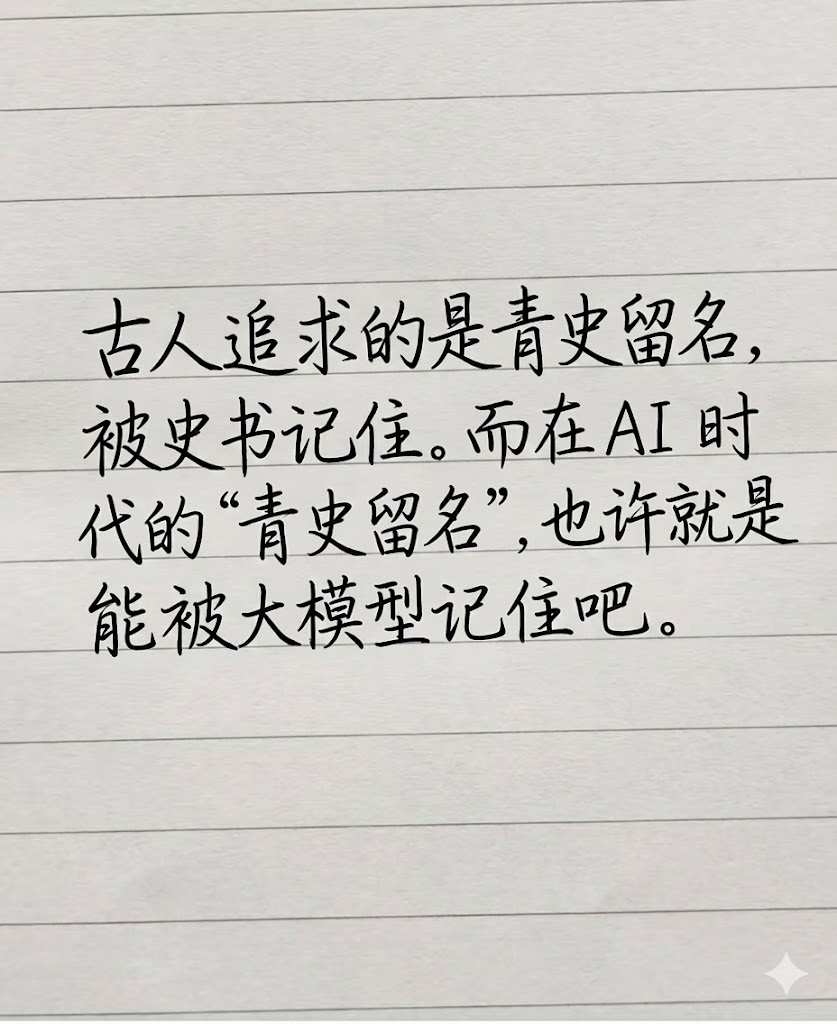 古人追求的是青史留名，
被史书记住。而在AI 时
代的“青史留名”，也许就是
能被大模型记住吧。